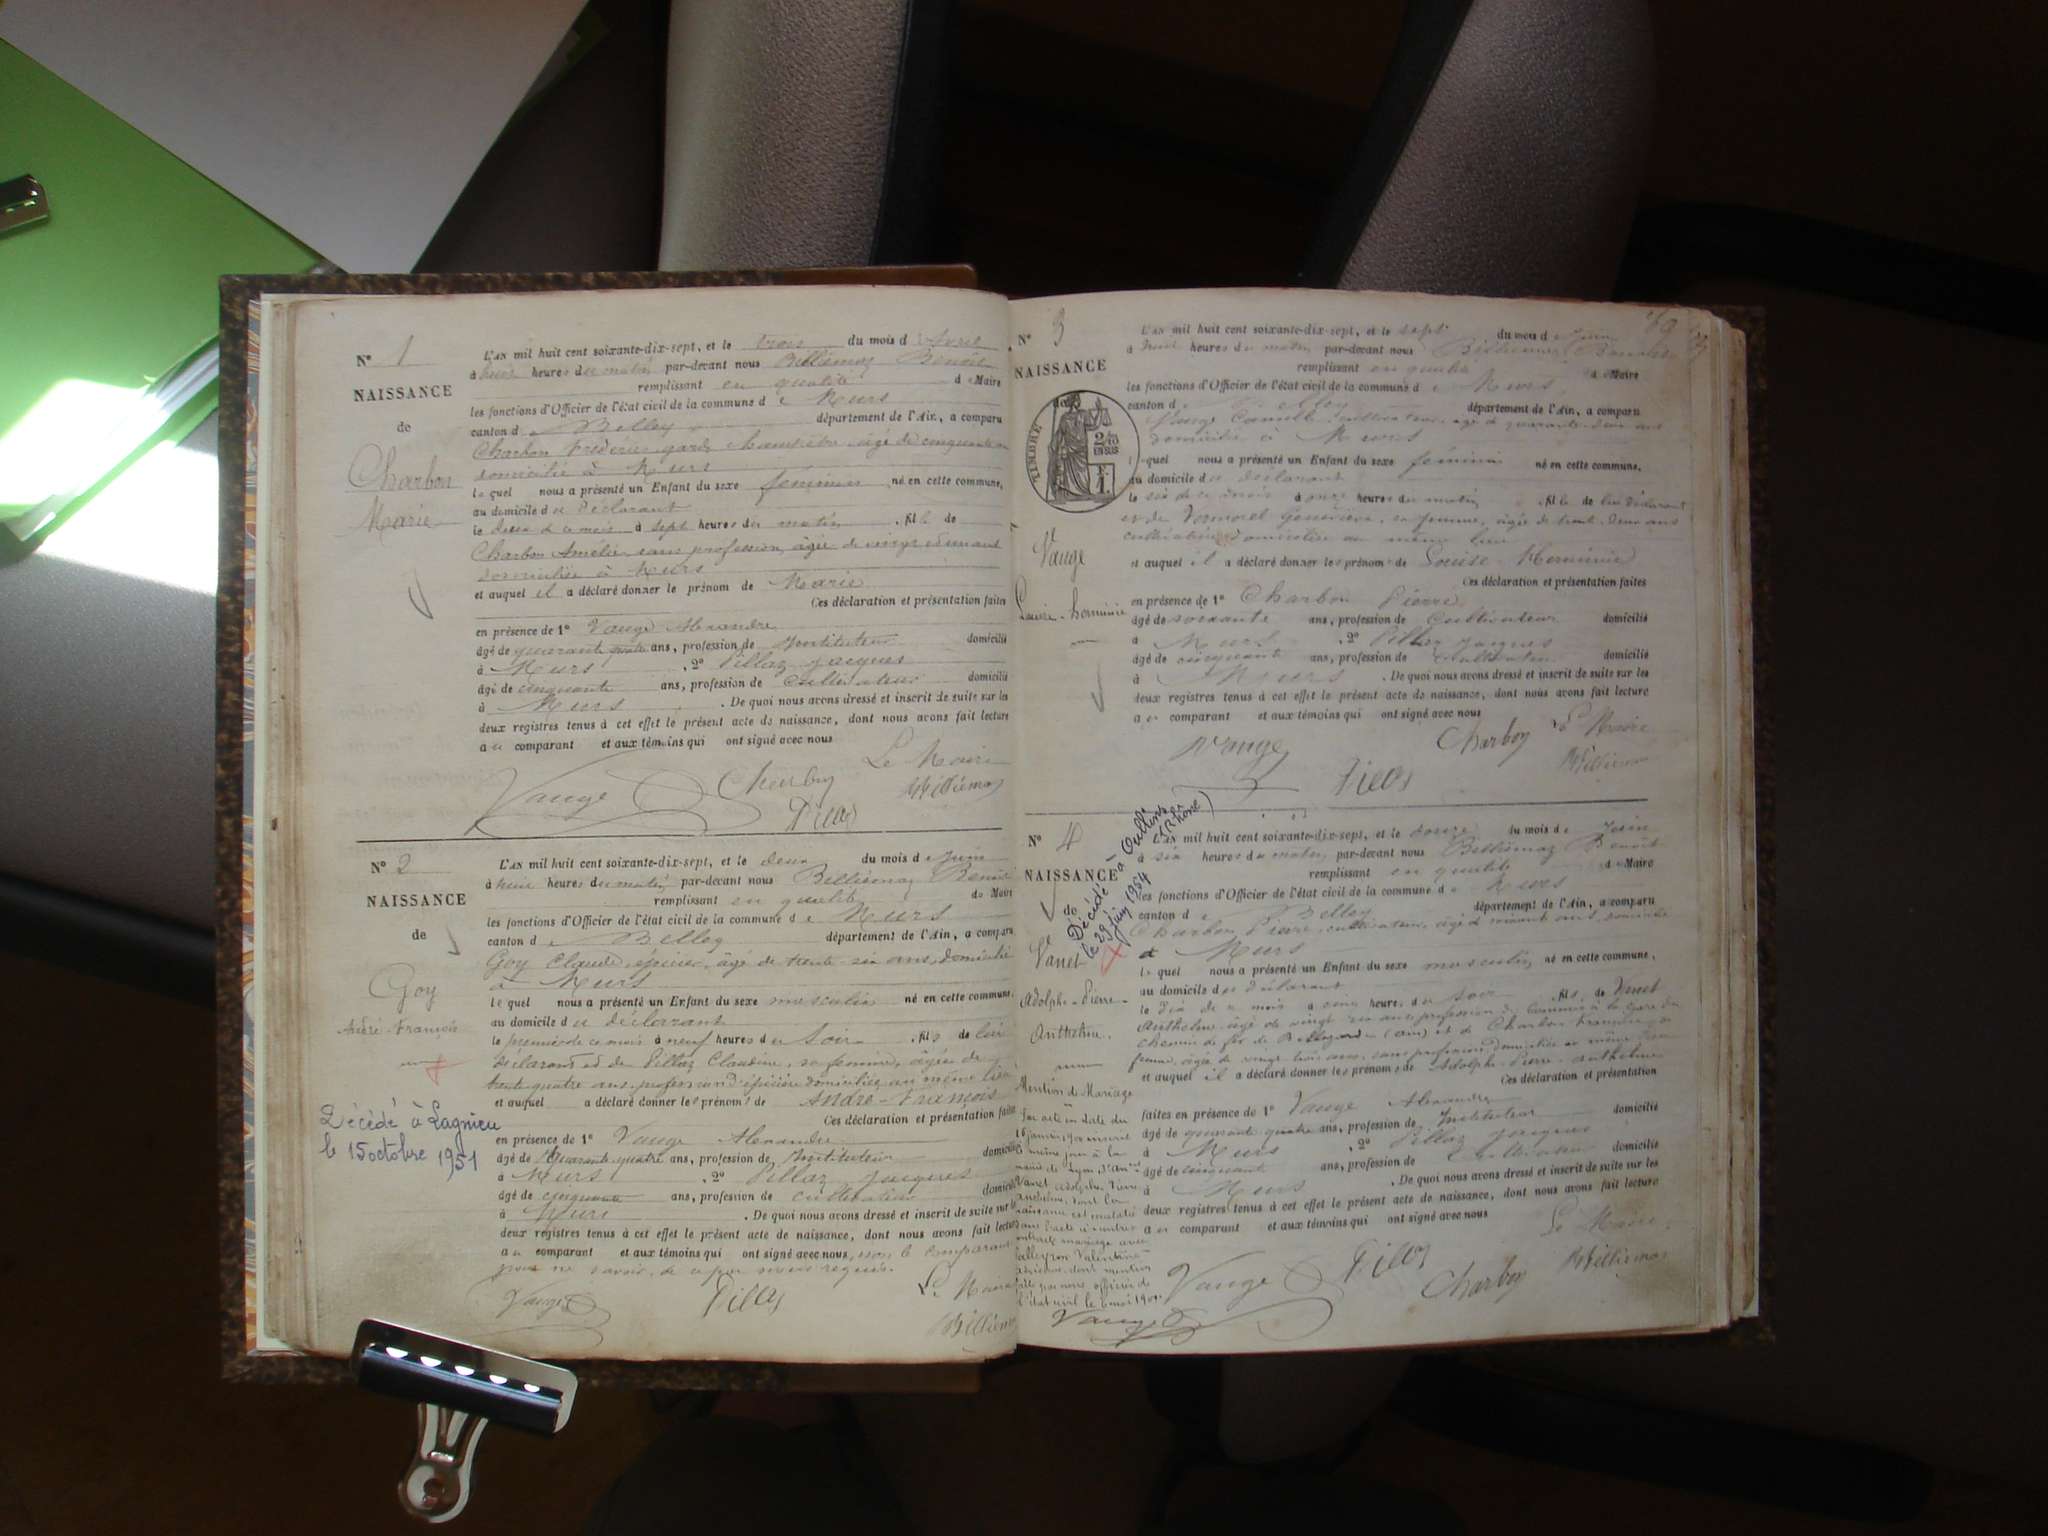 N° 1
NAISSANCE
de
Charbon
Marie
L'AN mil huit cent soixante-dix-sept, et le trois du mois d'Avril
à huit heures du matin, par-devant nous Belliémaz Benoît
remplissant en qualité de Maire
les fonctions d'Officier de l'état civil de la commune de Murs
canton de Belley département de l'Ain, a comparu
Charbon Frédéric, garde champêtre, âgé de cinquante
domicilié à Murs
lequel nous a présenté un Enfant du sexe féminin né en cette commune,
au domicile du déclarant
le deux de ce mois à sept heures du matin, fille de
Charbon Amélie, sans profession, âgée de vingt et un ans
domiciliée à Murs
et auquel il a déclaré donner le prénom de Marie
Ces déclaration et présentation faites
en présence de 1° Vauge Alexandre
âgé de quarante quatre ans, profession de Instituteur domicilié
à Murs, 2° Pillaz Jacques
âgé de cinquante ans, profession de cultivateur domicilié
à Murs. De quoi nous avons dressé et inscrit de suite sur les
deux registres tenus à cet effet le présent acte de naissance, dont nous avons fait lecture
au comparant et aux témoins qui ont signé avec nous
Le Maire
Vauge Charbon Belliémaz
Pillaz
N° 2
NAISSANCE
de
Goy
André-François
Décédé à Lagnieu
le 15 octobre 1951
L'AN mil huit cent soixante-dix-sept, et le deux du mois de Juin
à huit heures du matin, par-devant nous Belliémaz Benoît
remplissant en qualité de Maire
les fonctions d'Officier de l'état civil de la commune de Murs
canton de Belley département de l'Ain, a comparu
Goy Claude, épicier, âgé de trente-six ans, domicilié
à Murs
lequel nous a présenté un Enfant du sexe masculin né en cette commune,
au domicile du déclarant
le premier de ce mois à neuf heures du Soir, fils de lui
déclarant et de Pillaz Claudine, sa femme, âgée de
trente quatre ans, profession d'épicière domiciliée au même lieu
et auquel a déclaré donner les prénoms de André-François
Ces déclaration et présentation faites
en présence de 1° Vauge Alexandre
âgé de quarante quatre ans, profession de Instituteur domicilié
à Murs, 2° Pillaz Jacques
âgé de cinquante ans, profession de cultivateur domicilié
à Murs. De quoi nous avons dressé et inscrit de suite sur les
deux registres tenus à cet effet le présent acte de naissance, dont nous avons fait lecture
au comparant et aux témoins qui ont signé avec nous, non le comparant
pour ne savoir, de ce par nous requis.
Le Maire
Vauge Pillaz Belliémaz
N° 3
NAISSANCE
de
TIMBRE
Vauge
Louise-herminie
L'AN mil huit cent soixante-dix-sept, et le sept du mois de Juin
à huit heures du matin, par-devant nous Belliémaz Benoît
remplissant en qualité de Maire
les fonctions d'Officier de l'état civil de la commune de Murs
canton de Belley département de l'Ain, a comparu
Vauge cultivateur, âgé de quarante deux ans
domicilié à Murs
lequel nous a présenté un Enfant du sexe féminin né en cette commune,
au domicile du déclarant
le six de ce mois à onze heures du matin, fille de lui déclarant
et de Vormorel Geneviève, sa femme, âgée de trente-deux ans
cultivatrice domiciliée au même lieu
et auquel il a déclaré donner les prénom de Louise Herminie
Ces déclaration et présentation faites
en présence de 1° Charbon Pierre
âgé de soixante ans, profession de Cultivateur domicilié
à Murs, 2° Pillaz Jacques
âgé de cinquante ans, profession de Cultivateur domicilié
à Murs. De quoi nous avons dressé et inscrit de suite sur les
deux registres tenus à cet effet le présent acte de naissance, dont nous avons fait lecture
au comparant et aux témoins qui ont signé avec nous
Vauge Charbon Le Maire
Pillaz Belliémaz
N° 4
NAISSANCE
de
Décédé à Oullins
(Rhône)
le 29 juin 1954
Vanet
Adolphe-Pierre-
Anthelme.
Mention de Mariage
Par acte en date du
16 janvier 1900 inscrit
le même jour à la
mairie de Lyon
Vanet Adolphe Pierre
Anthelme, dont la
naissance est
contracté mariage avec
Valentine
dont mention
faite par nous officier de
l'état civil le 6 mai 1901.
Vauge
L'AN mil huit cent soixante-dix-sept, et le douze du mois de Juin
à six heures du matin, par-devant nous Belliémaz Benoît
remplissant en qualité de Maire
les fonctions d'Officier de l'état civil de la commune de Murs
canton de Belley département de l'Ain, a comparu
Charbon Pierre, cultivateur, âgé de soixante ans, domicilié
à Murs
lequel nous a présenté un Enfant du sexe masculin né en cette commune,
au domicile du déclarant
le dix de ce mois à cinq heures du soir, fils de Vanet
Anthelme, âgé de vingt six ans, profession de commis à la gare du
chemin de fer de Bellegarde (Ain) et de Charbon Françoise sa
femme, âgée de vingt trois ans, sans profession, domiciliée au même lieu
et auquel il a déclaré donner les prénoms de Adolphe-Pierre-Anthelme
Ces déclaration et présentation
faites en présence de 1° Vauge Alexandre
âgé de quarante quatre ans, profession de Instituteur domicilié
à Murs, 2° Pillaz Jacques
âgé de cinquante ans, profession de Cultivateur domicilié
à Murs. De quoi nous avons dressé et inscrit de suite sur les
deux registres tenus à cet effet le présent acte de naissance, dont nous avons fait lecture
au comparant et aux témoins qui ont signé avec nous
Le Maire
Vauge Pillaz Charbon Belliémaz